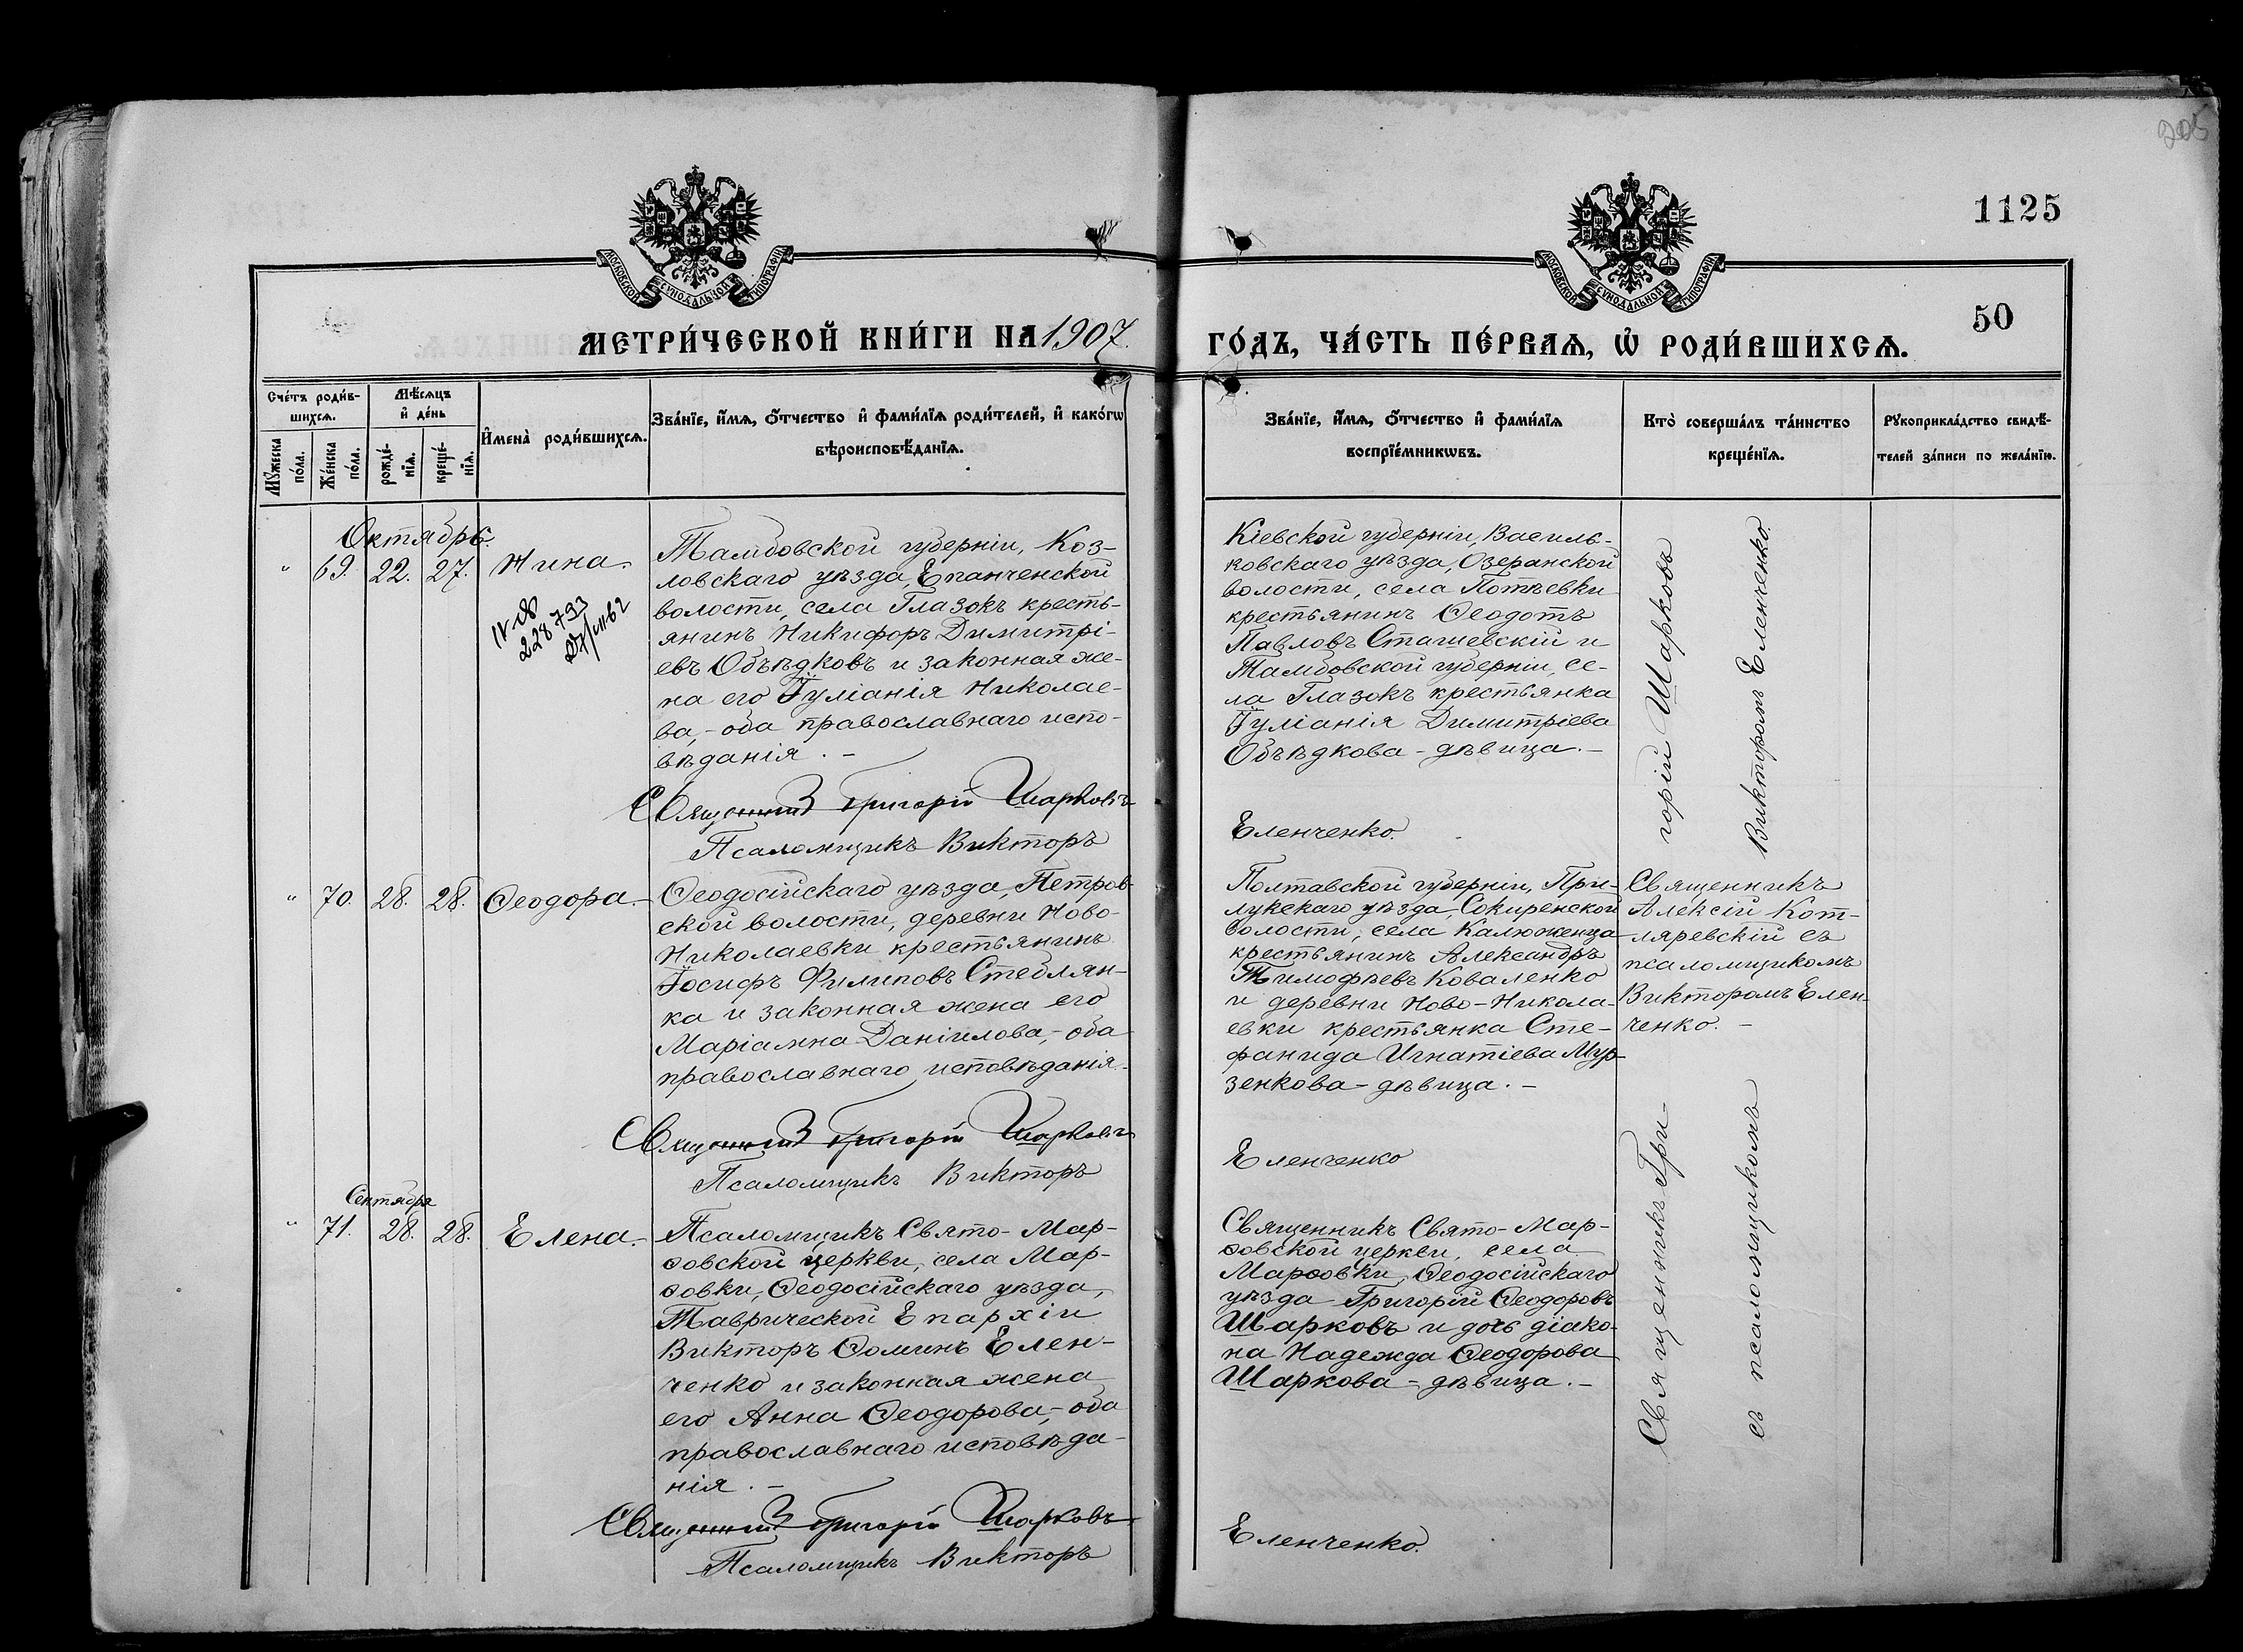 1125
50
МЕТРИ́ЧЕСКОЙ КНИ́ГИ НА 1907.
ГО́ДЪ, ЧА́СТЬ ПЕ́РВАѦ, Ѡ҆ РОДИ́ВШИХСѦ.
МОСКОВСКОЙ СѴНОДАЛЬНОЙ ТИПОГРАФІИ
МОСКОВСКОЙ СѴНОДАЛЬНОЙ ТИПОГРАФІИ
Сче́тъ роди́в-
шихсѧ.
Мꙋ́жеска по́ла.
Же́нска по́ла.
Мѣ́сѧцъ
и҆ де́нь
рожде́-
нїѧ.
креще́-
нїѧ.
И҆мена̀ роди́вшихсѧ.
Зва́нїе, и҆́мѧ, ѻ҆́тчество и҆ фами́лїѧ роди́телей, и҆ како́гѡ
вѣроисповѣ́данїѧ.
Зва́нїе, и҆́мѧ, ѻ҆́тчество и҆ фами́лїѧ
воспрїе́мникѡвъ.
Кто̀ соверша́лъ та́инство
креще́нїѧ.
Рꙋкоприкла́дство свидѣ́-
телей за́писи по жела́нїю.
Октябрь.
" 69. 22. 27. Нина.
Тамбовской губерніи, Коз-
ловскаго уѣзда, Епанченской
волости, села Глазокъ кресть-
янинъ Никифоръ Димитрі-
евъ Объѣдковъ и законная же-
на его Іуліанія Николае-
ва, - оба православнаго испо-
вѣданія. -
228733
Священникъ Григорій Шарковъ
Псаломщикъ Викторъ
Кіевской губерніи, Василь-
ковскаго уѣзда, Озеранской
волости, села Потѣевки
крестьянинъ Ѳеодотъ
Павловъ Сташевскій и
Тамбовской губерніи, се-
ла Глазокъ крестьянка
Іуліанія Димитріева
Объѣдкова - дѣвица. -
Еленченко.
Священникъ Гри-
горій Шарковъ
съ псаломщикомъ
Викторомъ Еленченко.
" 70. 28. 28. Ѳеодора. -
Ѳеодосійскаго уѣзда, Петров-
ской волости, деревни Ново-
Николаевки крестьянинъ
Іосифъ Филиповъ Стеблян-
ка и законная жена его
Маріамна Даніилова, - оба
православнаго исповѣданія. -
Священникъ Григорій Шарковъ
Псаломщикъ Викторъ
Полтавской губерніи, При-
лукскаго уѣзда, Сокиренской
волости, села Калюженца
крестьянинъ Александръ
Тимофѣевъ Коваленко
и деревни Ново-Никола-
евки крестьянка Сте-
фанида Игнатіева Мур-
зенкова - дѣвица. -
Еленченко
Священникъ
Алексій Кот-
ляревскій съ
псаломщикомъ
Викторомъ Елен-
ченко. -
Сентября
" 71. 28. 28. Елена. -
Псаломщикъ Свято-Мар-
ѳовской церкви, села Мар-
ѳовки, Ѳеодосійскаго уѣзда,
Таврической Епархіи
Викторъ Ѳоминъ Елен-
ченко и законная жена
его Анна Ѳеодорова, - оба
православнаго исповѣда-
нія. -
Священникъ Григорій Шарковъ
Псаломщикъ Викторъ
Священникъ Свято-Мар-
ѳовской церкви, села
Марѳовки, Ѳеодосійскаго
уѣзда Григорій Ѳеодоровъ
Шарковъ и дочь діако-
на Надежда Ѳеодорова
Шаркова - дѣвица. -
Еленченко.